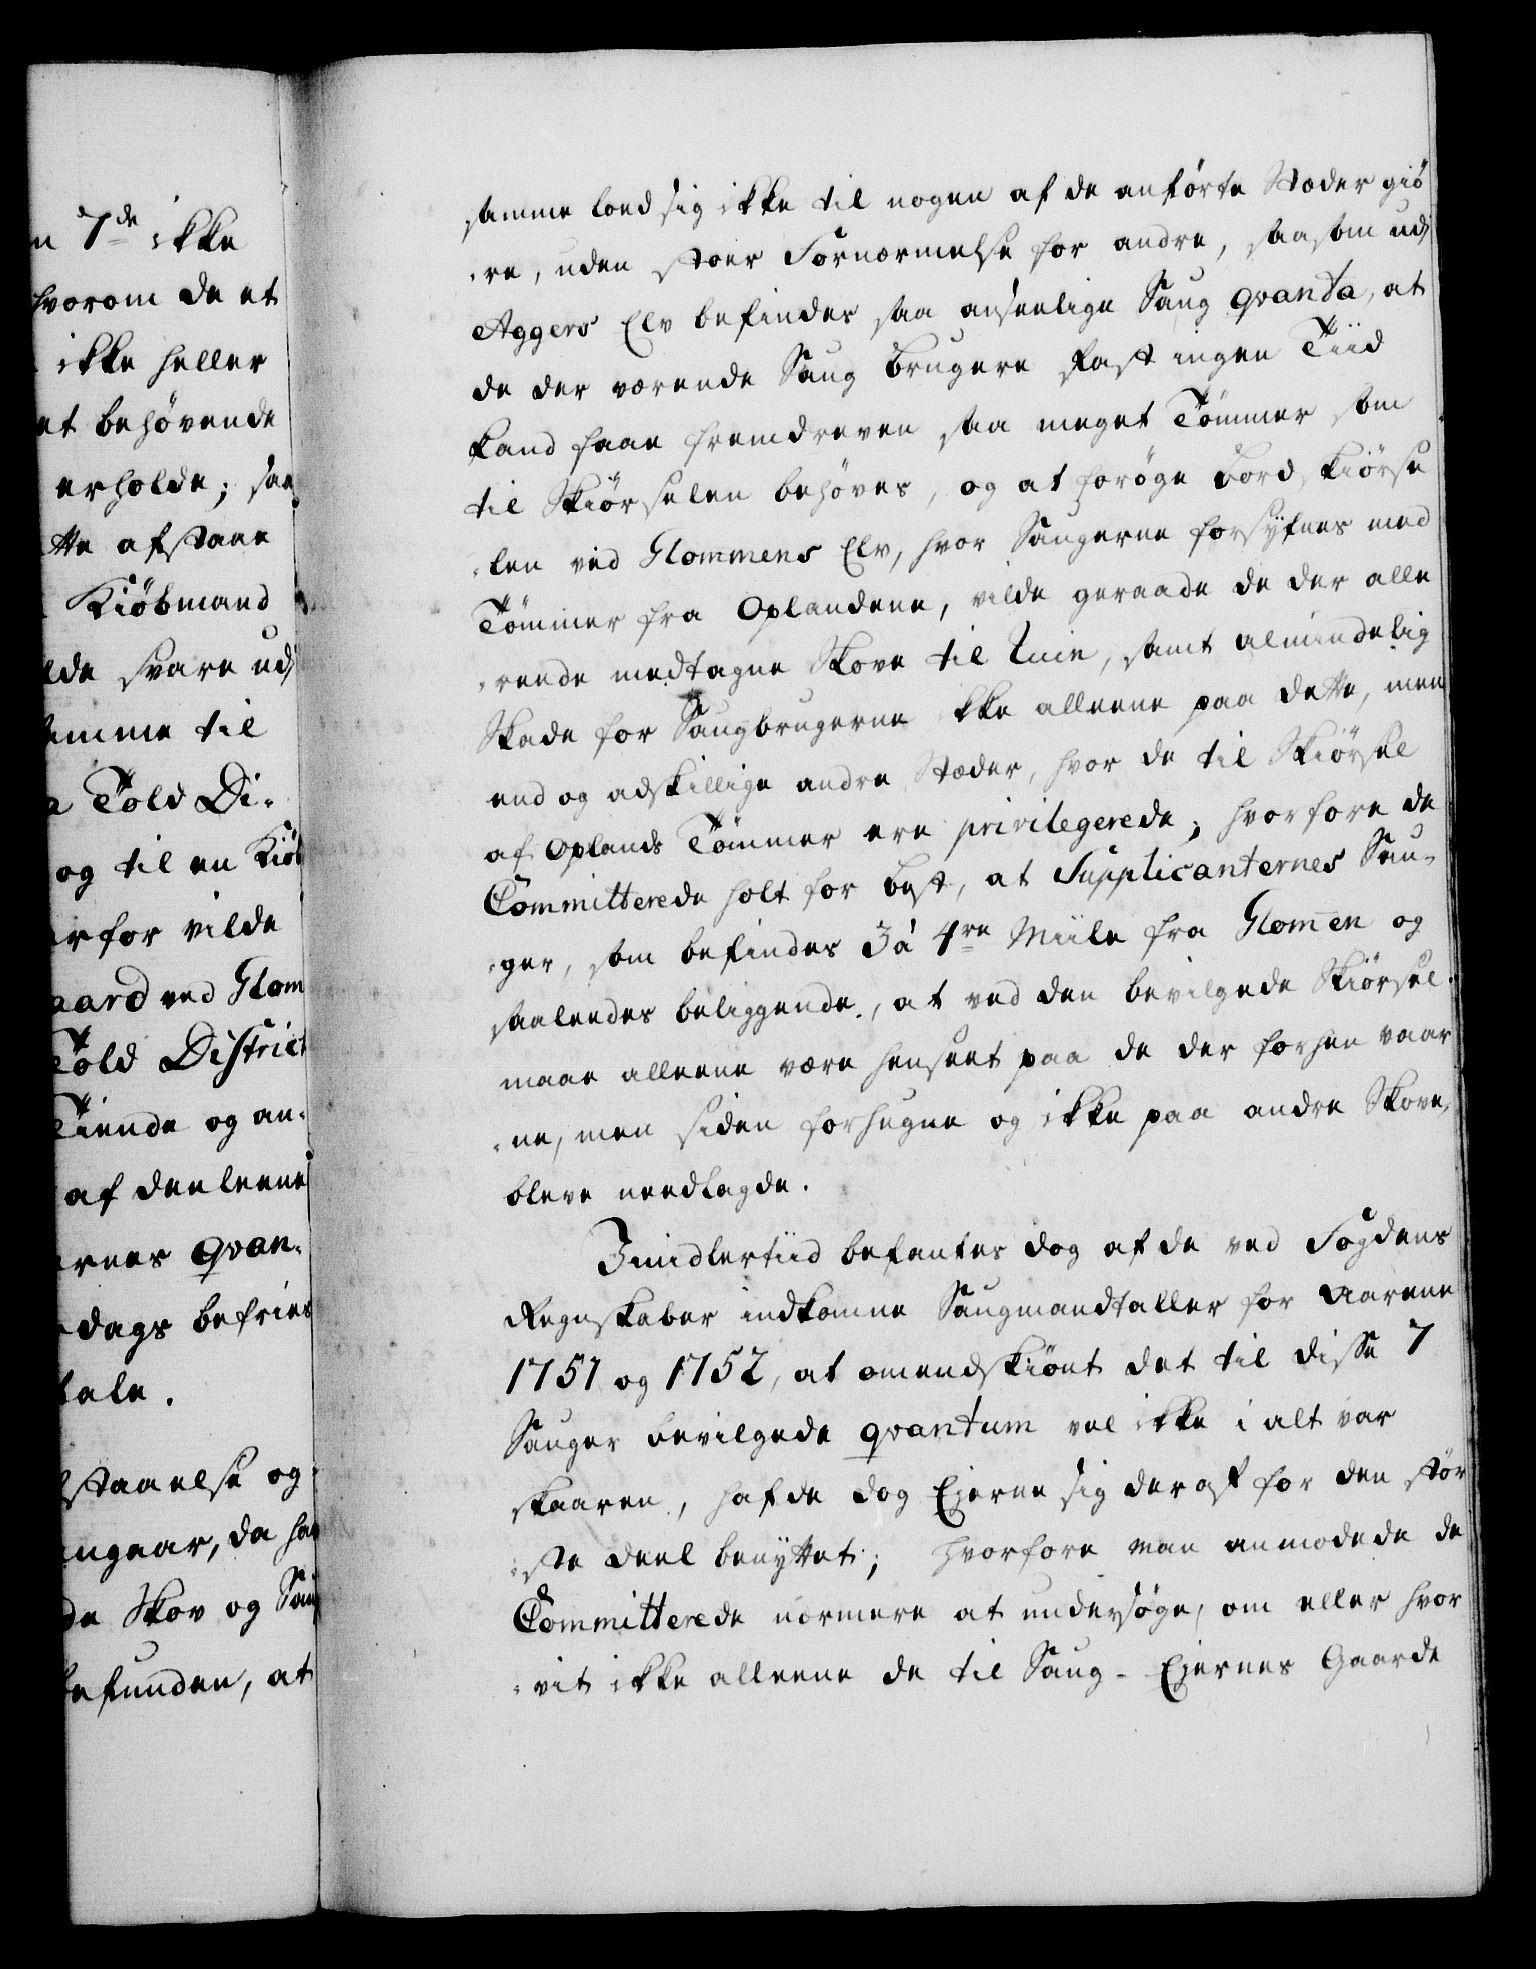 n 7de ikke
hvorom de et
ikke heller
et behøvende
erholde; saa
tte afstaae
Kiøbmand
lde svare udj
amme til
a Told Di-
og til en Kiøb
erfor vilde
aard ved Glom
Told District
Tiende og an-
af deeleene
ernes qvan-
dags befries
tale.
staaelse og
angaar, da ha
de Skov og Sau
befunden, at
samme loed sig ikke til nogen af de anførte Stæder giø
-re, uden stoer Fornærmelse for andre, saasom udj
Aggers Elv befindes saa anseelige Saug qvanta, at
de der værende Saug brugere fast ingen Tiid
kand faae fremdreven saa meget Tømmer som
til Skiørselen behøves, og at forøge Bord skiørse
-len ved Glommens Elv, hvor Saugerne forsyfnes med
Tømmer fra Oplandene, vilde geraade de der alle
-reede medtagne Skove til Ruin, samt almindelig
Skade for Saugbrugerne ikke alleene paa dette, men
end og adskillige andre Stæder, hvor de til Skiørsel
af Oplands Tømmer ere privilegerede; hvorfore de
Committerede holt for best, at Supplicanternes Sau-
-ger, som befindes 3 á 4re Miile fra Glomen og
saaleedes beliggende, at ved den bevilgede Skiørsel
maae alleene være henseet paa de der forhen vaar
-ne, men siden forhugne og ikke paa andre Skove,
bleve needlagde.
Imidlertiid befantes dog af de ved Fogdens
Regnskaber indkomne Saugmandtaller for Aarene
1751 og 1752, at omendskiønt det til disse 7
Sauger bevilgede qvantum vel ikke i alt var
skaaren, hafde dog Ejerne sig deraf for den stør
-ste deel benyttet; hvorfore man anmodede de
Committerede nærmere at undersøge, om eller hvor
-vit ikke alleene de til Saug-Ejernes Gaarde